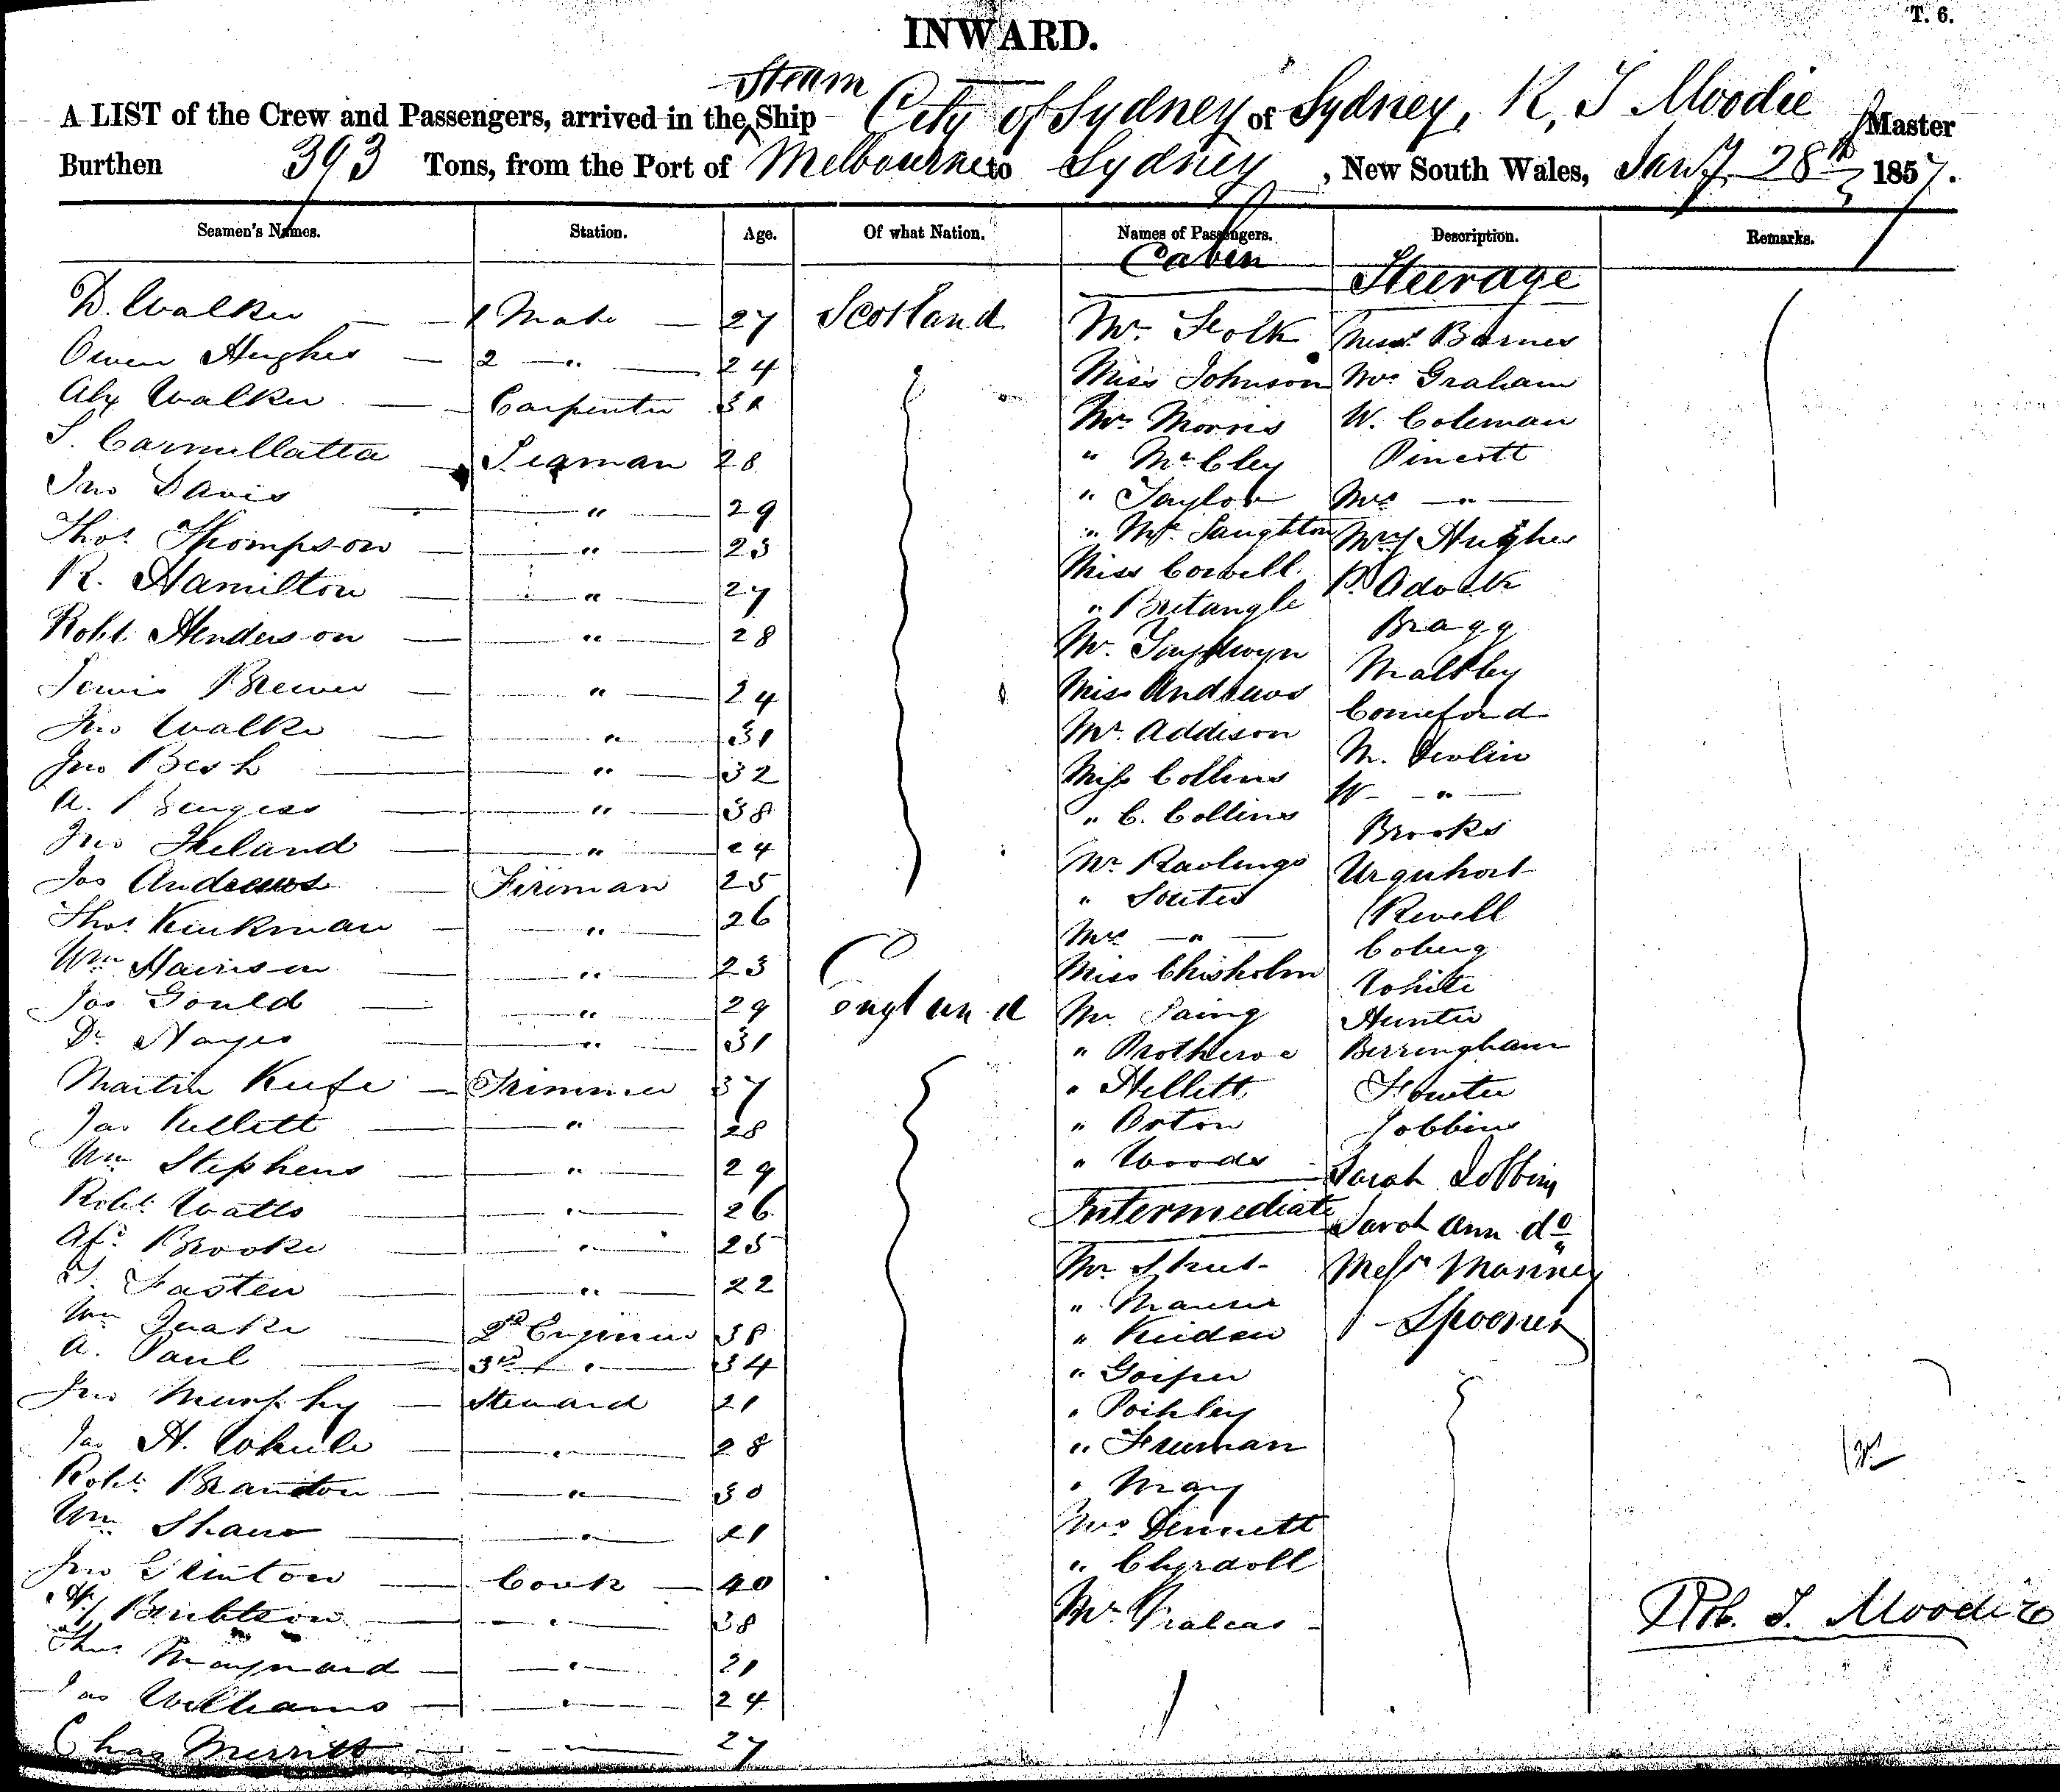 T. 6.
INWARD.
A LIST of the Crew and Passengers, arrived in the Steam Ship City of Sydney of Sydney, R, T Moodie Master
Burthen 393 Tons, from the Port of Melbourne to Sydney, New South Wales, Jany 28th 1857.
Seamen's Names. Station. Age. Of what Nation. Names of Passengers. Description. Remarks.
Cabin Steerage
D. Walker 1 Mate 27 Scotland Mr. Folk Messrs Barnes
Owen Hughes 2 " 24 Miss Johnson Mrs Graham
Alex Walker Carpenter Mr. Morris W. Coleman
Seaman 28 " McCley Pincott
Jno Davis " 29 " Taylor Mrs "
Thos Thompson " 23 " McNaughton Hughes
R. Hamilton " 27 Miss Cowell
Robt Henderson " 28 " Bragg
Lewis Brewer " 24 Mr. Maltby
Jno Walker " 31 Miss Andrews Comeford
Jno Besh " 32 Mr. Addison M. Devlin
A. Burgess " 38 Miss Collins W "
Jno Ireland " 24 " C. Collins Brooks
Jas Andrews Fireman 25 Mr Rawlings Urquhart
Thos Kinkman " 26 " Souter Revell
Wm Harrison " 23 Mrs " Coburg
Jas Gould " 29 England Miss Chisholm White
D. Hayes " 31 Mr Laing Hunter
Martin Keefe Trimmer 37 " Protheroe Berringham
Jas Kellett " 28 " Hellett Fowter
Wm Stephens " 29 " Orton Jobbins
Robt Watts " 26 " Woods Sarah Jobbins
Brooke " 25 Intermediate Sarah Ann do
T. Fasten " 22 Mr Messrs Manney
Wm Quake 2nd Engineer 38 " Spooner
A. Paul 3rd " 34 "
Jno Murphy Steward 21 "
Jas H. Wheele " 28 "
Robt Brandon " 30 " Freeman
Wm Shaw " 21 " May
Jno Clinton Cook 40 Mrs Dennett
" 38 "
Thos Maynard " 21 Mr
Jas Williams " 24
Chas Merritt " 27
Rob. T. Moodie